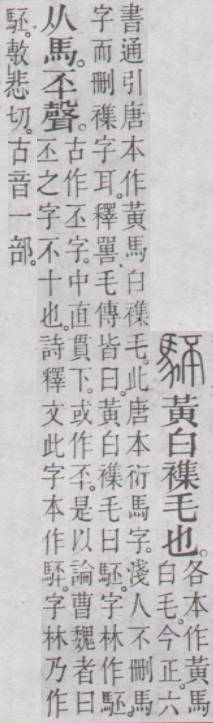 黃白襍毛也。各本作黃馬
白毛。今正。六
書通引唐本作黃馬白襍毛。此唐本衍馬字。淺人不刪馬
字而刪襍字耳。釋嘼、毛傳皆曰。黃白襍毛曰駓。字林作駓。
从馬。丕聲。古作丕字。中直貫下。或作㔻。是以論曹魏者曰
丕之字不十也。詩釋文此字本作駓。字林乃作
駓。敷悲切。古音一部。